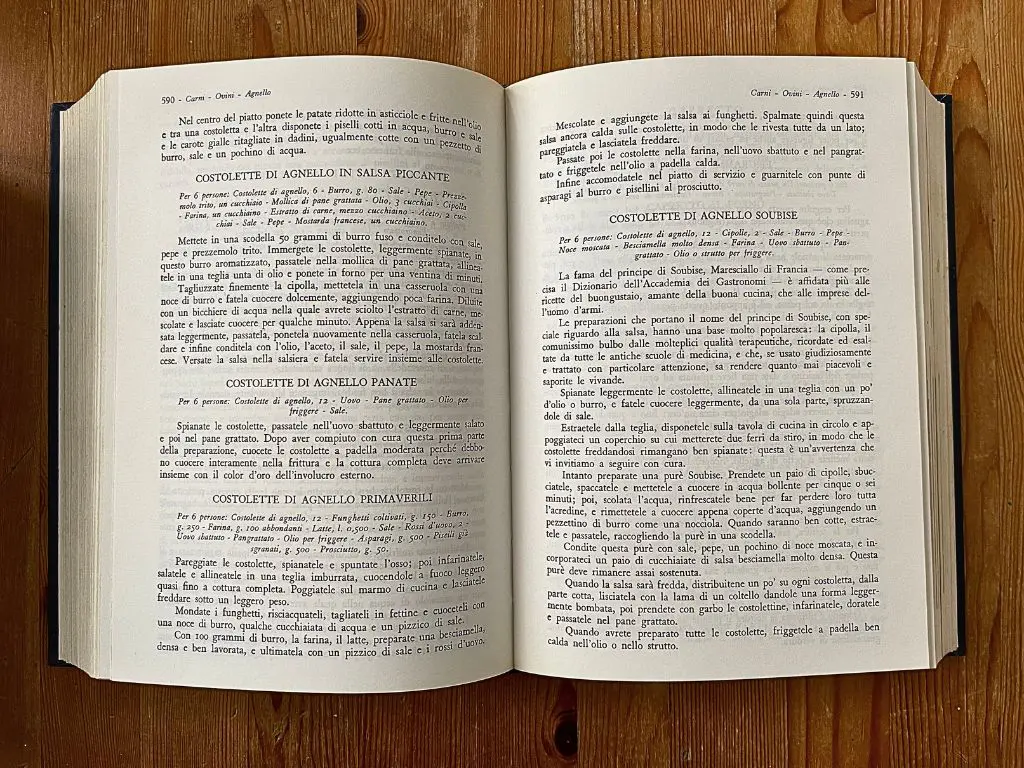 590 - Carni - Ovini - Agnello
Nel centro del piatto ponete le patate ridotte in asticciole e fritte nell'olio
e tra una costoletta e l'altra disponete i piselli cotti in acqua, burro e sale
e le carote gialle ritagliate in dadini, ugualmente cotte con un pezzetto di
burro, sale e un pochino di acqua.
COSTOLETTE DI AGNELLO IN SALSA PICCANTE
Per 6 persone: Costolette di agnello, 6 - Burro, g. 80 - Sale - Pepe - Prezze-
molo trito, un cucchiaio - Mollica di pane grattata - Olio, 3 cucchiai - Cipolla
- Farina, un cucchiaino - Estratto di carne, mezzo cucchiaino - Aceto, 2 cuc-
chiai - Sale - Pepe - Mostarda francese, un cucchiaino.
Mettete in una scodella 50 grammi di burro fuso e conditelo con sale,
pepe e prezzemolo trito. Immergete le costolette, leggermente spianate, in
questo burro aromatizzato, passatele nella mollica di pane grattata, allinea-
tele in una teglia unta di olio e ponete in forno per una ventina di minuti.
Tagliuzzate finemente la cipolla, mettetela in una casseruola con una
noce di burro e fatela cuocere dolcemente, aggiungendo poca farina. Diluite
con un bicchiere di acqua nella quale avrete sciolto l'estratto di carne, me-
scolate e lasciate cuocere per qualche minuto. Appena la salsa si sarà adden-
sata leggermente, passatela, ponetela nuovamente nella casseruola, fatela scal-
dare e infine conditela con l'olio, l'aceto, il sale, il pepe, la mostarda fran-
cese. Versate la salsa nella salsiera e fatela servire insieme alle costolette.
COSTOLETTE DI AGNELLO PANATE
Per 6 persone: Costolette di agnello, 12 - Uovo - Pane grattato - Olio per
friggere - Sale.
Spianate le costolette, passatele nell'uovo sbattuto e leggermente salato
e poi nel pane grattato. Dopo aver compiuto con cura questa prima parte
della preparazione, cuocete le costolette a padella moderata perché debbo-
no cuocere interamente nella frittura e la cottura completa deve arrivare
insieme con il color d'oro dell'involucro esterno.
COSTOLETTE DI AGNELLO PRIMAVERILI
Per 6 persone: Costolette di agnello, 12 - Funghetti coltivati, g. 150 - Burro,
g. 250 - Farina, g. 100 abbondanti - Latte, l. 0,500 - Sale - Rossi d'uovo, 2 -
Uovo sbattuto - Pangrattato - Olio per friggere - Asparagi, g. 500 - Piselli già
sgranati, g. 500 - Prosciutto, g. 50.
Pareggiate le costolette, spianatele e spuntate l'osso; poi infarinatele,
salatele e allineatele in una teglia imburrata, cuocendole a fuoco leggero
quasi fino a cottura completa. Poggiatele sul marmo di cucina e lasciatele
freddare sotto un leggero peso.
Mondate i funghetti, risciacquateli, tagliateli in fettine e cuoceteli con
una noce di burro, qualche cucchiaiata di acqua e un pizzico di sale.
Con 100 grammi di burro, la farina, il latte, preparate una besciamella,
densa e ben lavorata, e ultimatela con un pizzico di sale e i rossi d'uovo.
Carni - Ovini - Agnello - 591
Mescolate e aggiungete la salsa ai funghetti. Spalmate quindi questa
salsa ancora calda sulle costolette, in modo che le rivesta tutte da un lato;
pareggiatela e lasciatela freddare.
Passate poi le costolette nella farina, nell'uovo sbattuto e nel pangrat-
tato e friggetele nell'olio a padella calda.
Infine accomodatele nel piatto di servizio e guarnitele con punte di
asparagi al burro e pisellini al prosciutto.
COSTOLETTE DI AGNELLO SOUBISE
Per 6 persone: Costolette di agnello, 12 - Cipolle, 2 - Sale - Burro - Pepe -
Noce moscata - Besciamella molto densa - Farina - Uovo sbattuto - Pan-
grattato - Olio o strutto per friggere.
La fama del principe di Soubise, Maresciallo di Francia — come pre-
cisa il Dizionario dell'Accademia dei Gastronomi — è affidata più alle
ricette del buongustaio, amante della buona cucina, che alle imprese del-
l'uomo d'armi.
Le preparazioni che portano il nome del principe di Soubise, con spe-
ciale riguardo alla salsa, hanno una base molto popolaresca: la cipolla, il
comunissimo bulbo dalle molteplici qualità terapeutiche, ricordate ed esal-
tate da tutte le antiche scuole di medicina, e che, se usato giudiziosamente
e trattato con particolare attenzione, sa rendere quanto mai piacevoli e
saporite le vivande.
Spianate leggermente le costolette, allineatele in una teglia con un po'
d'olio o burro, e fatele cuocere leggermente, da una sola parte, spruzzan-
dole di sale.
Estraetele dalla teglia, disponetele sulla tavola di cucina in circolo e ap-
poggiateci un coperchio su cui metterete due ferri da stiro, in modo che le
costolette freddandosi rimangano ben spianate: questa è un'avvertenza che
vi invitiamo a seguire con cura.
Intanto preparate una purè Soubise. Prendete un paio di cipolle, sbuc-
ciatele, spaccatele e mettetele a cuocere in acqua bollente per cinque o sei
minuti; poi, scolata l'acqua, rinfrescatele bene per far perdere loro tutta
l'acredine, e rimettetele a cuocere appena coperte d'acqua, aggiungendo un
pezzettino di burro come una nocciola. Quando saranno ben cotte, estrae-
tele e passatele, raccogliendo la purè in una scodella.
Condite questa purè con sale, pepe, un pochino di noce moscata, e in-
corporateci un paio di cucchiaiate di salsa besciamella molto densa. Questa
purè deve rimanere assai sostenuta.
Quando la salsa sarà fredda, distribuitene un po' su ogni costoletta, dalla
parte cotta, lisciatela con la lama di un coltello dandole una forma legger-
mente bombata, poi prendete con garbo le costolettine, infarinatele, doratele
e passatele nel pane grattato.
Quando avrete preparato tutte le costolette, friggetele a padella ben
calda nell'olio o nello strutto.